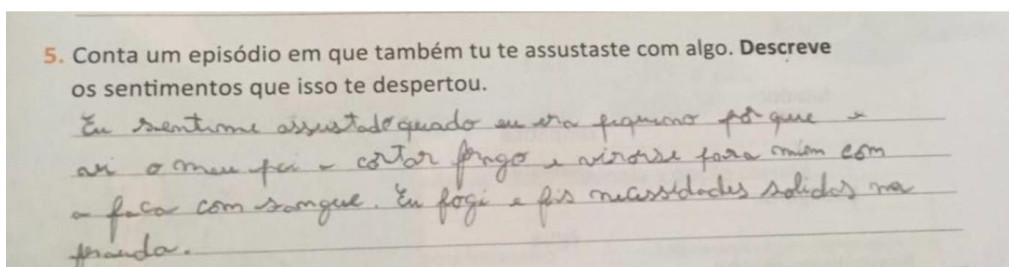 5. Conta um episódio em que também tu te assustaste com algo. Descreve
os sentimentos que isso te despertou.
Eu sentime assustado quado eu era piqueno por que
vi o meu pai a cortar frago e virorse para mim com
a faca com sangue. Eu fogi e fis necessidades solidas na